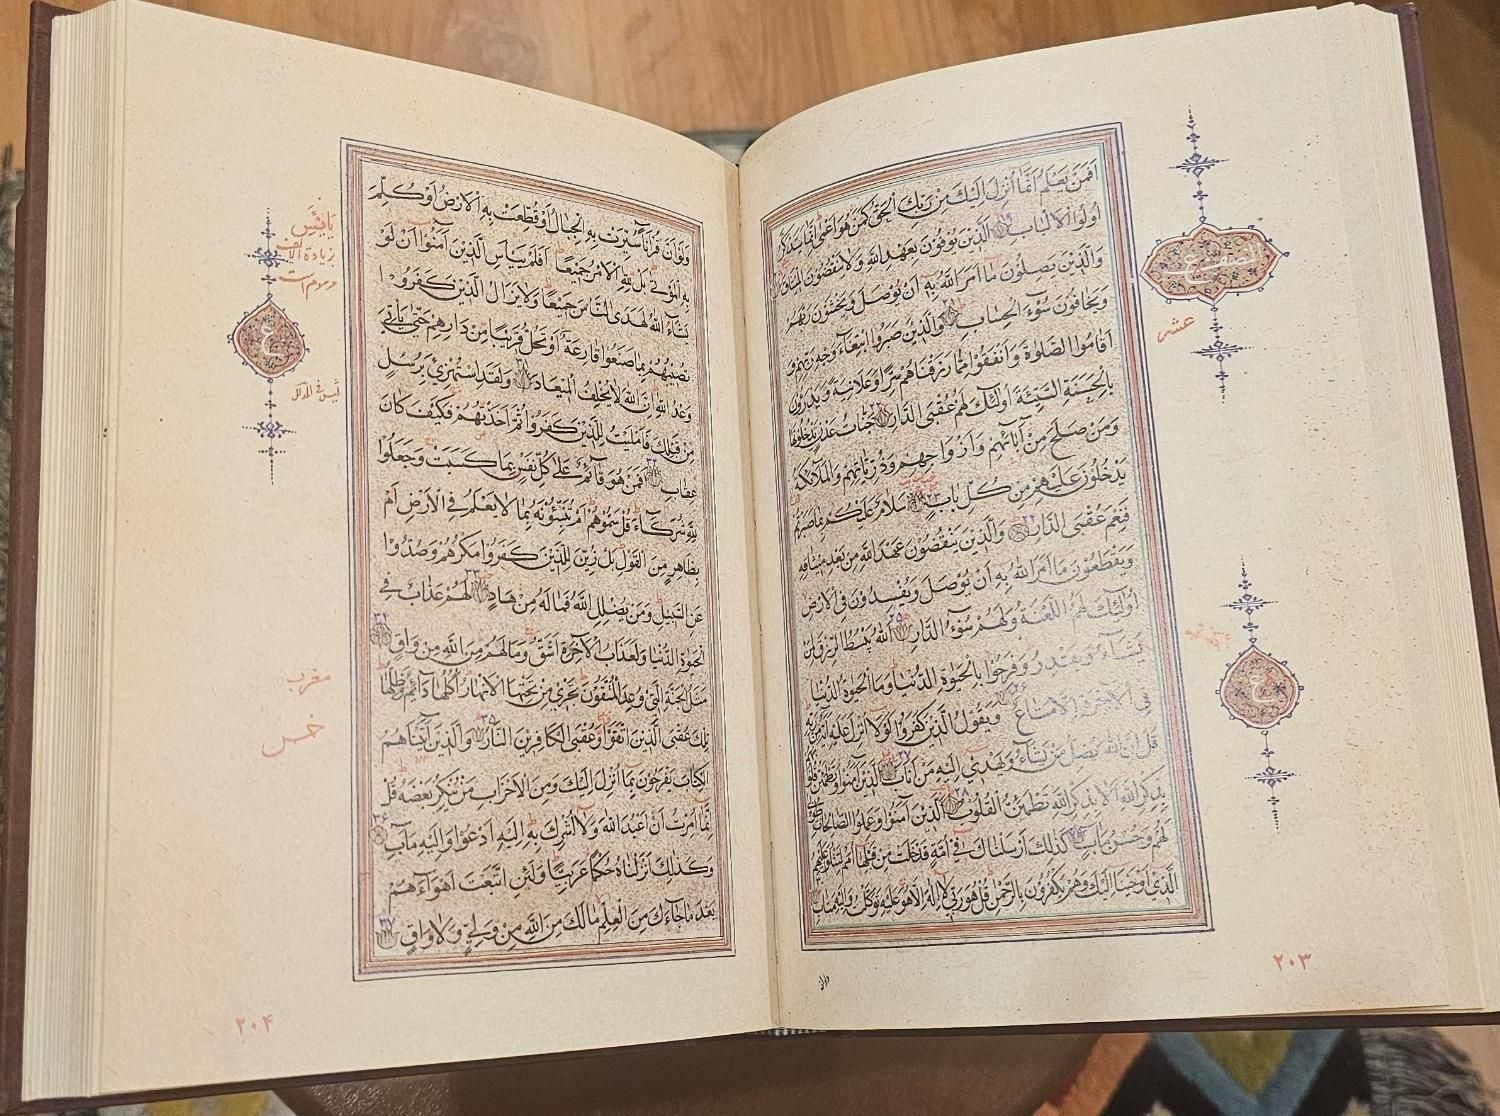 اَفَمَنْ يَعْلَمُ اَنَّمَا اُنْزِلَ اِلَيْكَ مِنْ رَبِّكَ الْحَقُّ كَمَنْ هُوَ اَعْمٰى اِنَّمَا يَتَذَكَّرُ
اُولُوا الْاَلْبَابِ ١٩ اَلَّذِينَ يُوفُونَ بِعَهْدِ اللهِ وَلَا يَنْقُضُونَ الْمِيثَاقَ
وَالَّذِينَ يَصِلُونَ مَا اَمَرَ اللهُ بِهِ اَنْ يُوصَلَ وَيَخْشَوْنَ رَبَّهُمْ
وَيَخَافُونَ سُوءَ الْحِسَابِ ٢١ وَالَّذِينَ صَبَرُوا ابْتِغَاءَ وَجْهِ رَبِّهِمْ وَ
اَقَامُوا الصَّلٰوةَ وَاَنْفَقُوا مِمَّا رَزَقْنَاهُمْ سِرًّا وَعَلَانِيَةً وَيَدْرَؤُنَ
بِالْحَسَنَةِ السَّيِّئَةَ اُولٰئِكَ لَهُمْ عُقْبَى الدَّارِ ٢٢ جَنَّاتُ عَدْنٍ يَدْخُلُونَهَا
وَمَنْ صَلَحَ مِنْ آبَائِهِمْ وَاَزْوَاجِهِمْ وَذُرِّيَّاتِهِمْ وَالْمَلَائِكَةُ
يَدْخُلُونَ عَلَيْهِمْ مِنْ كُلِّ بَابٍ ٢٣ سَلَامٌ عَلَيْكُمْ بِمَا صَبَرْتُمْ
فَنِعْمَ عُقْبَى الدَّارِ ٢٤ وَالَّذِينَ يَنْقُضُونَ عَهْدَ اللهِ مِنْ بَعْدِ مِيثَاقِهِ
وَيَقْطَعُونَ مَا اَمَرَ اللهُ بِهِ اَنْ يُوصَلَ وَيُفْسِدُونَ فِي الْاَرْضِ
اُولٰئِكَ لَهُمُ اللَّعْنَةُ وَلَهُمْ سُوءُ الدَّارِ ٢٥ اَللهُ يَبْسُطُ الرِّزْقَ لِمَنْ
يَشَاءُ وَيَقْدِرُ وَفَرِحُوا بِالْحَيٰوةِ الدُّنْيَا وَمَا الْحَيٰوةُ الدُّنْيَا
فِي الْآخِرَةِ اِلَّا مَتَاعٌ ٢٦ وَيَقُولُ الَّذِينَ كَفَرُوا لَوْلَا اُنْزِلَ عَلَيْهِ آيَةٌ مِنْ رَبِّهِ
قُلْ اِنَّ اللهَ يُضِلُّ مَنْ يَشَاءُ وَيَهْدِي اِلَيْهِ مَنْ اَنَابَ ٢٧ اَلَّذِينَ آمَنُوا وَتَطْمَئِنُّ قُلُوبُهُمْ
بِذِكْرِ اللهِ اَلَا بِذِكْرِ اللهِ تَطْمَئِنُّ الْقُلُوبُ ٢٨ اَلَّذِينَ آمَنُوا وَعَمِلُوا الصَّالِحَاتِ طُوبٰى
لَهُمْ وَحُسْنُ مَآبٍ ٢٩ كَذٰلِكَ اَرْسَلْنَاكَ فِي اُمَّةٍ قَدْ خَلَتْ مِنْ قَبْلِهَا اُمَمٌ لِتَتْلُوَ عَلَيْهِمُ
الَّذِي اَوْحَيْنَا اِلَيْكَ وَهُمْ يَكْفُرُونَ بِالرَّحْمٰنِ قُلْ هُوَ رَبِّي لَا اِلٰهَ اِلَّا هُوَ عَلَيْهِ تَوَكَّلْتُ وَاِلَيْهِ مَتَابِ
ع
عشر
ع
٢٠٣
وَلَوْ اَنَّ قُرْآنًا سُيِّرَتْ بِهِ الْجِبَالُ اَوْ قُطِّعَتْ بِهِ الْاَرْضُ اَوْ كُلِّمَ
بِهِ الْمَوْتٰى بَلْ لِلّٰهِ الْاَمْرُ جَمِيعًا اَفَلَمْ يَيْاَسِ الَّذِينَ آمَنُوا اَنْ لَوْ
يَشَاءُ اللهُ لَهَدَى النَّاسَ جَمِيعًا وَلَا يَزَالُ الَّذِينَ كَفَرُوا
تُصِيبُهُمْ بِمَا صَنَعُوا قَارِعَةٌ اَوْ تَحُلُّ قَرِيبًا مِنْ دَارِهِمْ حَتّٰى يَاْتِيَ
وَعْدُ اللهِ اِنَّ اللهَ لَا يُخْلِفُ الْمِيعَادَ ٣١ وَلَقَدِ اسْتُهْزِئَ بِرُسُلٍ
مِنْ قَبْلِكَ فَاَمْلَيْتُ لِلَّذِينَ كَفَرُوا ثُمَّ اَخَذْتُهُمْ فَكَيْفَ كَانَ
عِقَابِ ٣٢ اَفَمَنْ هُوَ قَائِمٌ عَلٰى كُلِّ نَفْسٍ بِمَا كَسَبَتْ وَجَعَلُوا
لِلّٰهِ شُرَكَاءَ قُلْ سَمُّوهُمْ اَمْ تُنَبِّئُونَهُ بِمَا لَا يَعْلَمُ فِي الْاَرْضِ اَمْ
بِظَاهِرٍ مِنَ الْقَوْلِ بَلْ زُيِّنَ لِلَّذِينَ كَفَرُوا مَكْرُهُمْ وَصُدُّوا
عَنِ السَّبِيلِ وَمَنْ يُضْلِلِ اللهُ فَمَا لَهُ مِنْ هَادٍ ٣٣ لَهُمْ عَذَابٌ فِي
الْحَيٰوةِ الدُّنْيَا وَلَعَذَابُ الْآخِرَةِ اَشَقُّ وَمَا لَهُمْ مِنَ اللهِ مِنْ وَاقٍ ٣٤
مَثَلُ الْجَنَّةِ الَّتِي وُعِدَ الْمُتَّقُونَ تَجْرِي مِنْ تَحْتِهَا الْاَنْهَارُ اُكُلُهَا دَائِمٌ وَظِلُّهَا
تِلْكَ عُقْبَى الَّذِينَ اتَّقَوْا وَعُقْبَى الْكَافِرِينَ النَّارُ ٣٥ وَالَّذِينَ آتَيْنَاهُمُ
الْكِتَابَ يَفْرَحُونَ بِمَا اُنْزِلَ اِلَيْكَ وَمِنَ الْاَحْزَابِ مَنْ يُنْكِرُ بَعْضَهُ قُلْ
اِنَّمَا اُمِرْتُ اَنْ اَعْبُدَ اللهَ وَلَا اُشْرِكَ بِهِ اِلَيْهِ اَدْعُوا وَاِلَيْهِ مَآبِ ٣٦
وَكَذٰلِكَ اَنْزَلْنَاهُ حُكْمًا عَرَبِيًّا وَلَئِنِ اتَّبَعْتَ اَهْوَاءَهُمْ
بَعْدَ مَا جَاءَكَ مِنَ الْعِلْمِ مَا لَكَ مِنَ اللهِ مِنْ وَلِيٍّ وَلَا وَاقٍ ٣٧
بزيادة الالف
ع
مغرب
خمس
٢٠٤